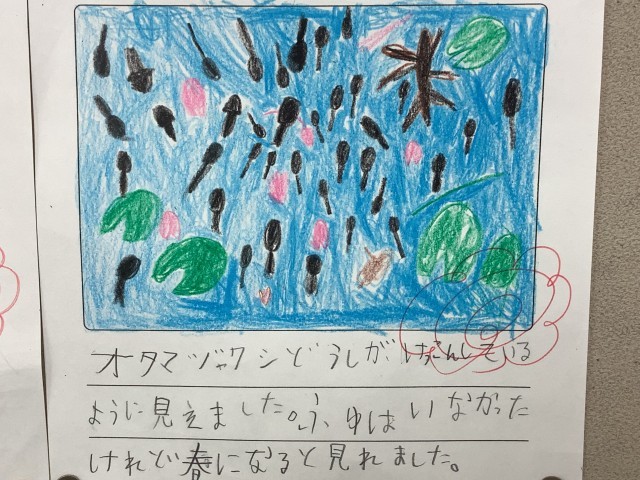 オタマヅャクシどうしがけんんしている
ように見えました。ふゆはいなかった
けれど春になると見れました。